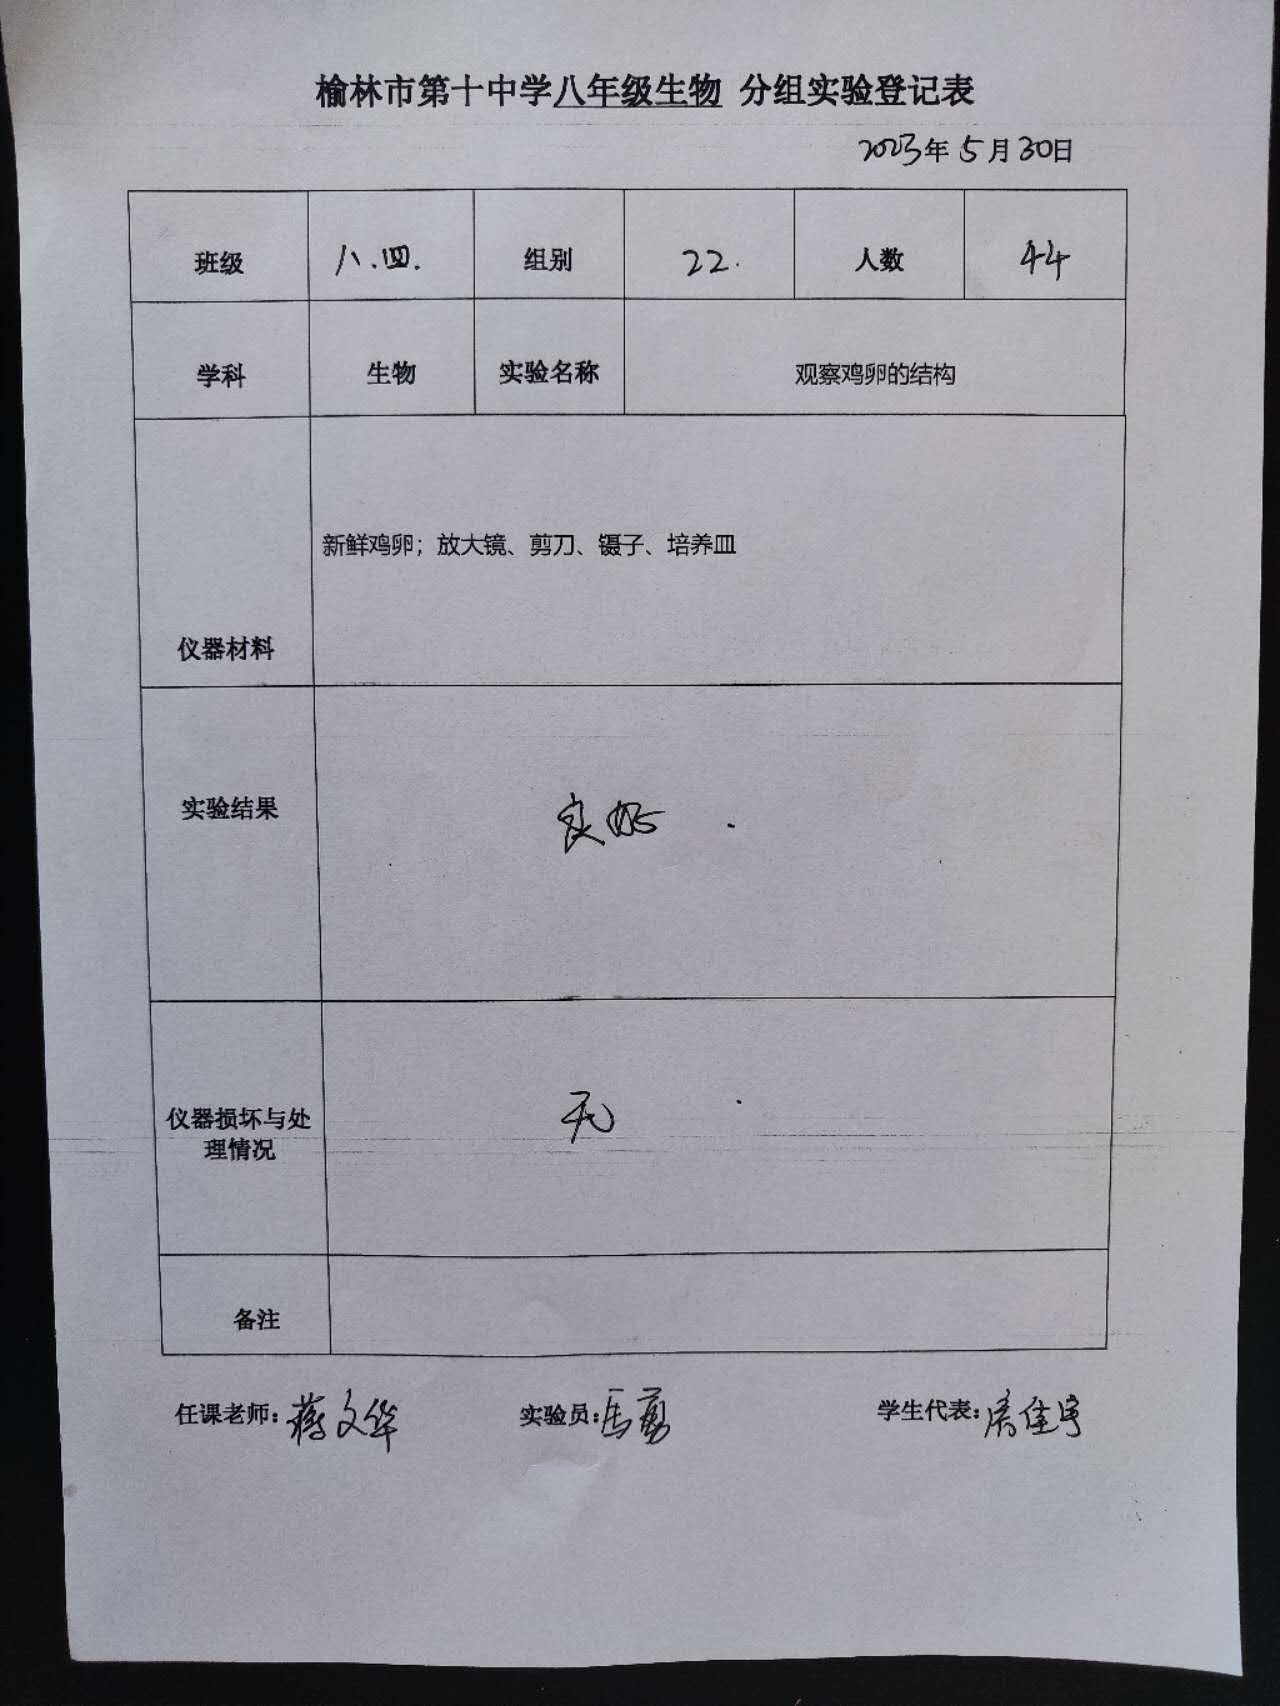 榆林市第十中学八年级生物 分组实验登记表
2023年5月30日
班级 八.四. 组别 22. 人数 44
学科 生物 实验名称 观察鸡卵的结构
新鲜鸡卵；放大镜、剪刀、镊子、培养皿
仪器材料
实验结果 良好.
仪器损坏与处
理情况
无.
备注
任课老师：蒋文华 实验员：马 学生代表：佳宇